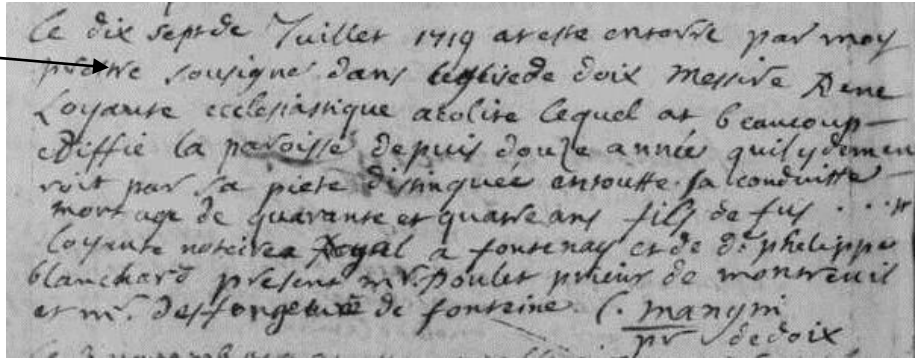 Le dix sept de Juillet 1719 at esté enterré par moy
prestre sousigné dans leglise de doix Messire Rene
Loyauté ecclesiastique acolite lequel at beaucoup
ediffié la paroisse depuis douze année quil y demeu
roit par sa pieté distinquée en toutte sa conduitte
mort agé de quarante et quatre ans fils de fus ...
Loyauté noteire Royal a fontenay et de de phelippe
blanchard present mr. poulet prieur de montreuil
et mr. desforges curé de fonteine. C. mangin
pr de doix